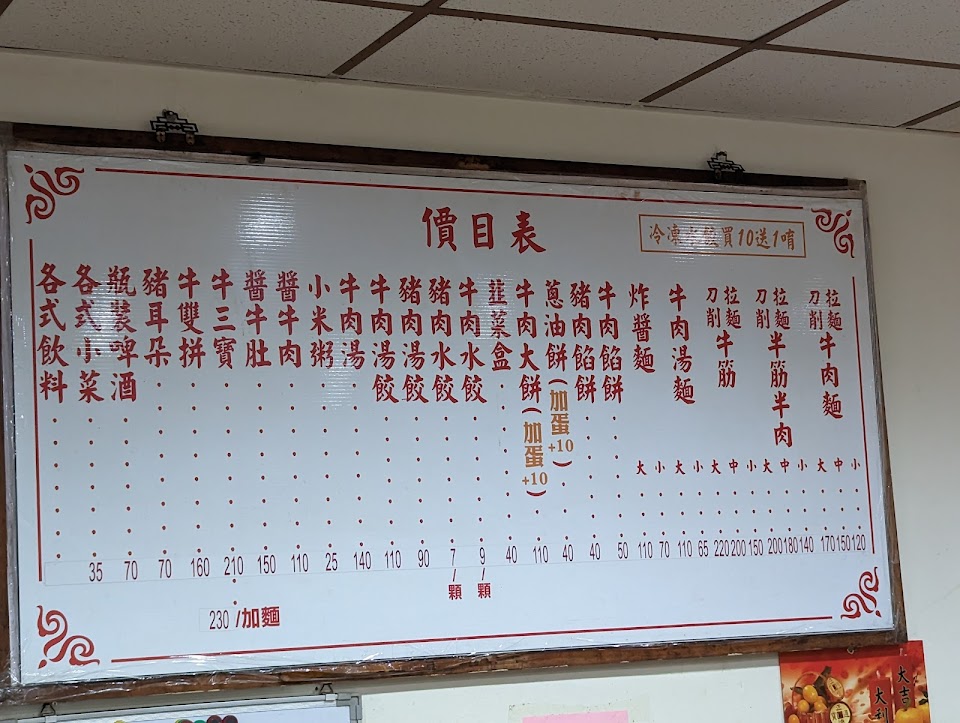 價目表
冷凍水餃買10送1唷
拉麵 刀削 牛肉麵 大 170 中 150 小 120
拉麵 刀削 半筋半肉 大 200 中 180 小 140
拉麵 刀削 牛筋 大 220 中 200 小 150
牛肉湯麵 大 110 小 65
炸醬麵 大 110 小 70
牛肉餡餅 50
豬肉餡餅 40
蔥油餅(加蛋+10) 40
牛肉大餅(加蛋+10) 110
韭菜盒 40
牛肉水餃 9/顆
豬肉水餃 7/顆
豬肉湯餃 90
牛肉湯餃 110
牛肉湯 140
小米粥 25
醬牛肉 110
醬牛肚 150
牛三寶 210
230/加麵
牛雙拼 160
豬耳朵 70
瓶裝啤酒 70
各式小菜 35
各式飲料
大吉
大利